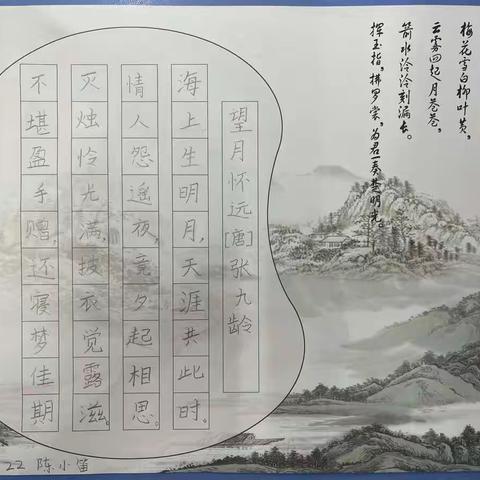 梅花雪白柳叶黄，
云雾四起月苍苍，
箭水泠泠刻漏长。
挥玉指，拂罗裳，为君一奏楚明光。
望月怀远[唐]张九龄
海上生明月，天涯共此时。
情人怨遥夜，竟夕起相思。
灭烛怜光满，披衣觉露滋。
不堪盈手赠，还寝梦佳期
22 陈小笛